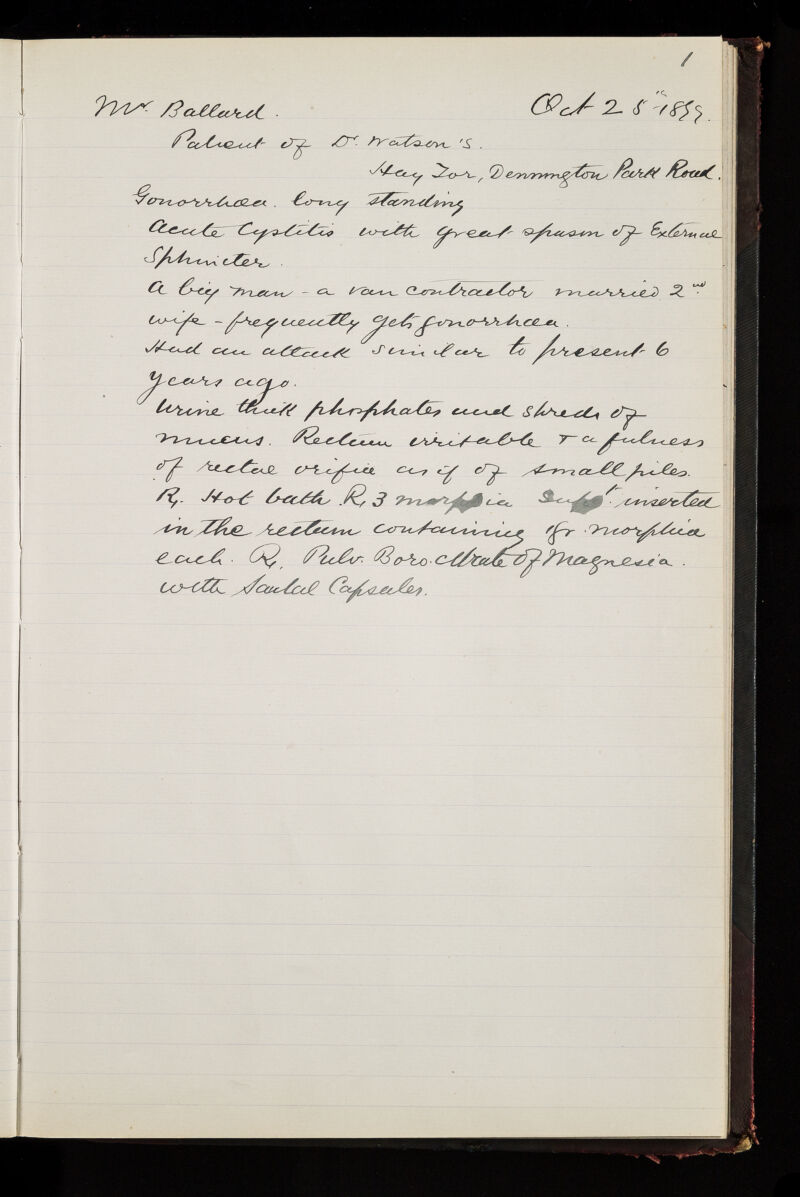 1
Mr. Ballard. Oct 25th 1899.
Patient of Dr. Watson's.
Hay Tor, Dennington Park Road.
Gonorrhœa. long standing
Acute Cystitis with great spasm of External
Sphincter.
A big man - a van contractor married 2nd
wife - frequently gets gonorrhœa.
Had an attack similar to present 6
years ago.
Urine thick phosphates and shreds of
mucus. Rectum irritable + a fulness
of rectal orifice as if of small piles.
Rx. Hot bath. Rx 3 morphia inserted
in the rectum containing gr. morphia
each. Rx. Pulv. Boro. citrate of Magnesia.
with Santal Capsules.